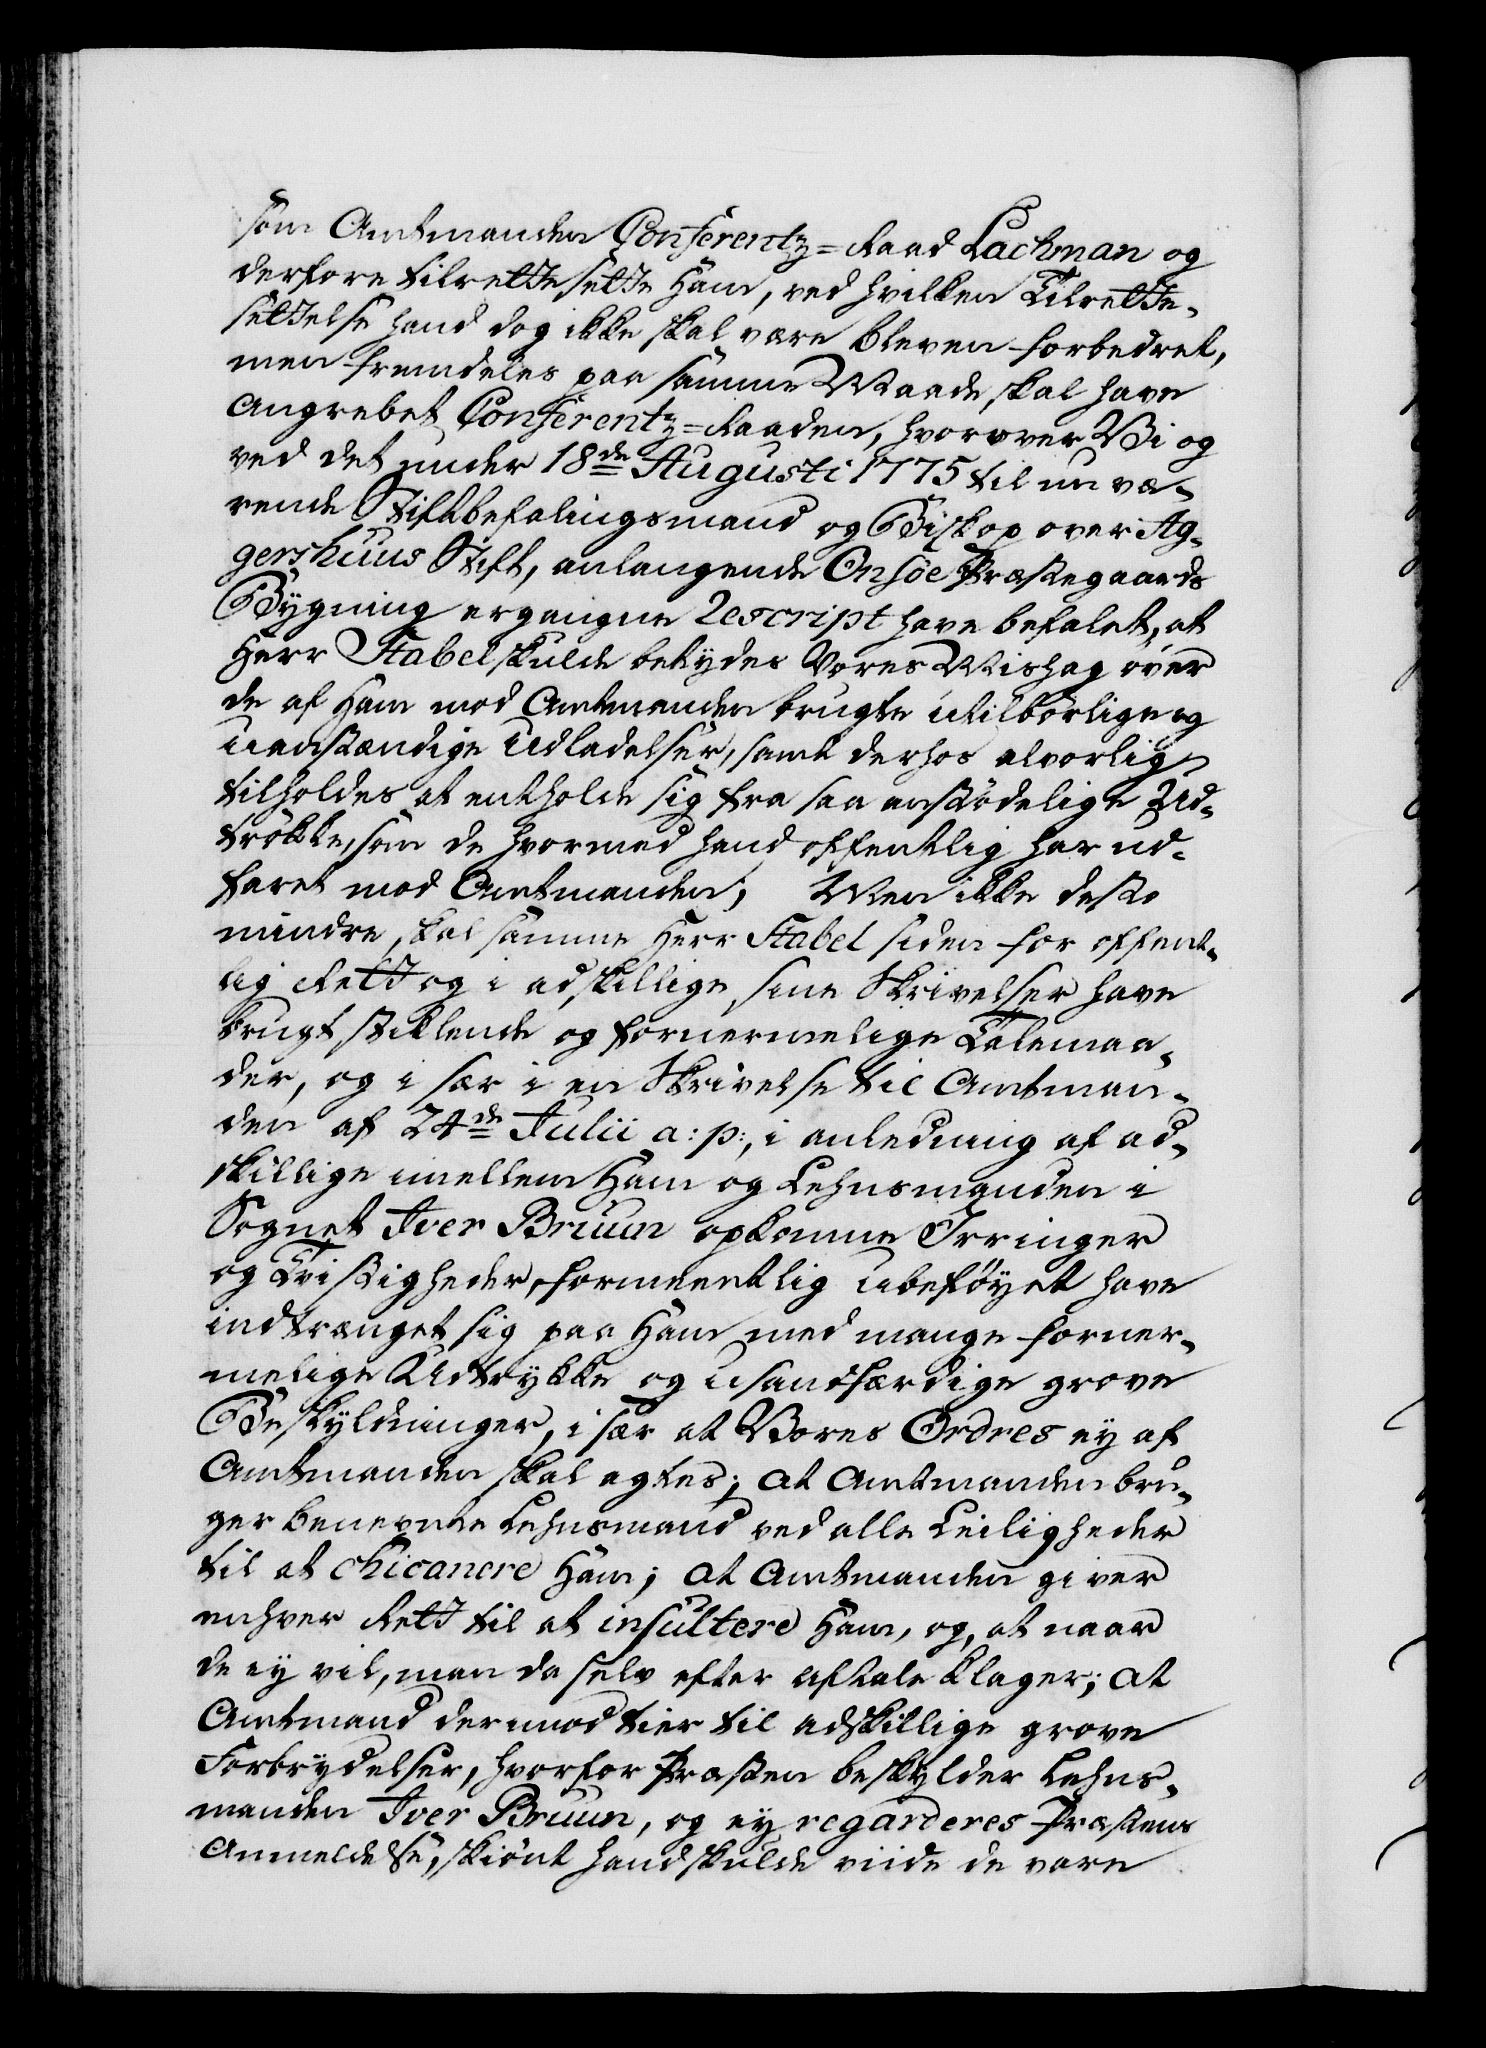 som Amtmanden Conferentz=Raad Lachman og
derfore tilrettesette Ham, ved hvilken Tilrette-
settelse hand dog ikke skal være bleven forbedret,
men fremdeles paa samme Maade skal have
angrebet Conferentz=Raaden, hvorover Vi og
ved det under 18de Augusti 1775 til nu væ-
rende Stiftbefalingsmand og Biskop over Ag-
gershuus Stift, anlangende Onsøe Præstegaards
Bygning ergangne Rescript have befalet, at
Herr Stabel skulde betydes Vores Mishag over
de af Ham mod Amtmanden brugte utilbørlige og
uanstændige Udladelser, samt derhos alvorlig
tilholdes at entholde sig fra saa anstødelige Ud-
trøkke, som de hvormed hand offentlig har ud-
faret mod Amtmanden; Men ikke desto
mindre skal samme Herr Stabel siden for offent-
lig Rett og i adskillige sine Skrivelser have
brugt stiklende og fornermelige Talemaa-
der, og i sær i en Skrivelse til Amtman-
den af 24de Julii a: p:, i anledning af ad-
skillige imellem Ham og Lehnsmanden i
Sognet Iver Bruun opkomne Irringer
og Tvistigheder, formeentlig ubeføyet have
indtrænget sig paa Ham med mange forner-
melige Udtrykke og usandfærdige grove
Beskyldninger, i sær at Vores Ordres ey af
Amtmanden skal agtes; at Amtmanden bru-
ger benevnte Lehnsmand ved alle Leiligheder
til at chicanere Ham; at Amtmanden giver
enhver Rett til at insultere Ham, og, at naar
de ey vil, man da selv efter Aftale klager; at
Amtmand derimod tier til adskillige grove
Forbrydelser, hvorfor Præsten beskylder Lehns-
manden Iver Bruun, og ey regarderes Præstens
Anmeldelse, skiønt hand skulde viide de vare